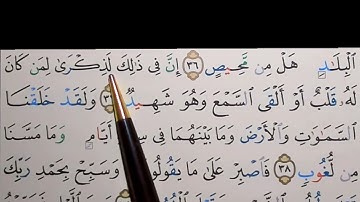 ٱلْبِلَٰدِ هَلْ مِن مَّحِيصٍ ٣٦ إِنَّ فِي ذَٰلِكَ لَذِكْرَىٰ لِمَن كَانَ
لَهُۥ قَلْبٌ أَوْ أَلْقَى ٱلسَّمْعَ وَهُوَ شَهِيدٌ وَلَقَدْ خَلَقْنَا
ٱلسَّمَٰوَٰتِ وَٱلْأَرْضَ وَمَا بَيْنَهُمَا فِي أَيَّامٍ وَمَا مَسَّنَا
مِن لُّغُوبٍ ٣٨ فَٱصْبِرْ عَلَىٰ مَا يَقُولُونَ وَسَبِّحْ بِحَمْدِ رَبِّكَ